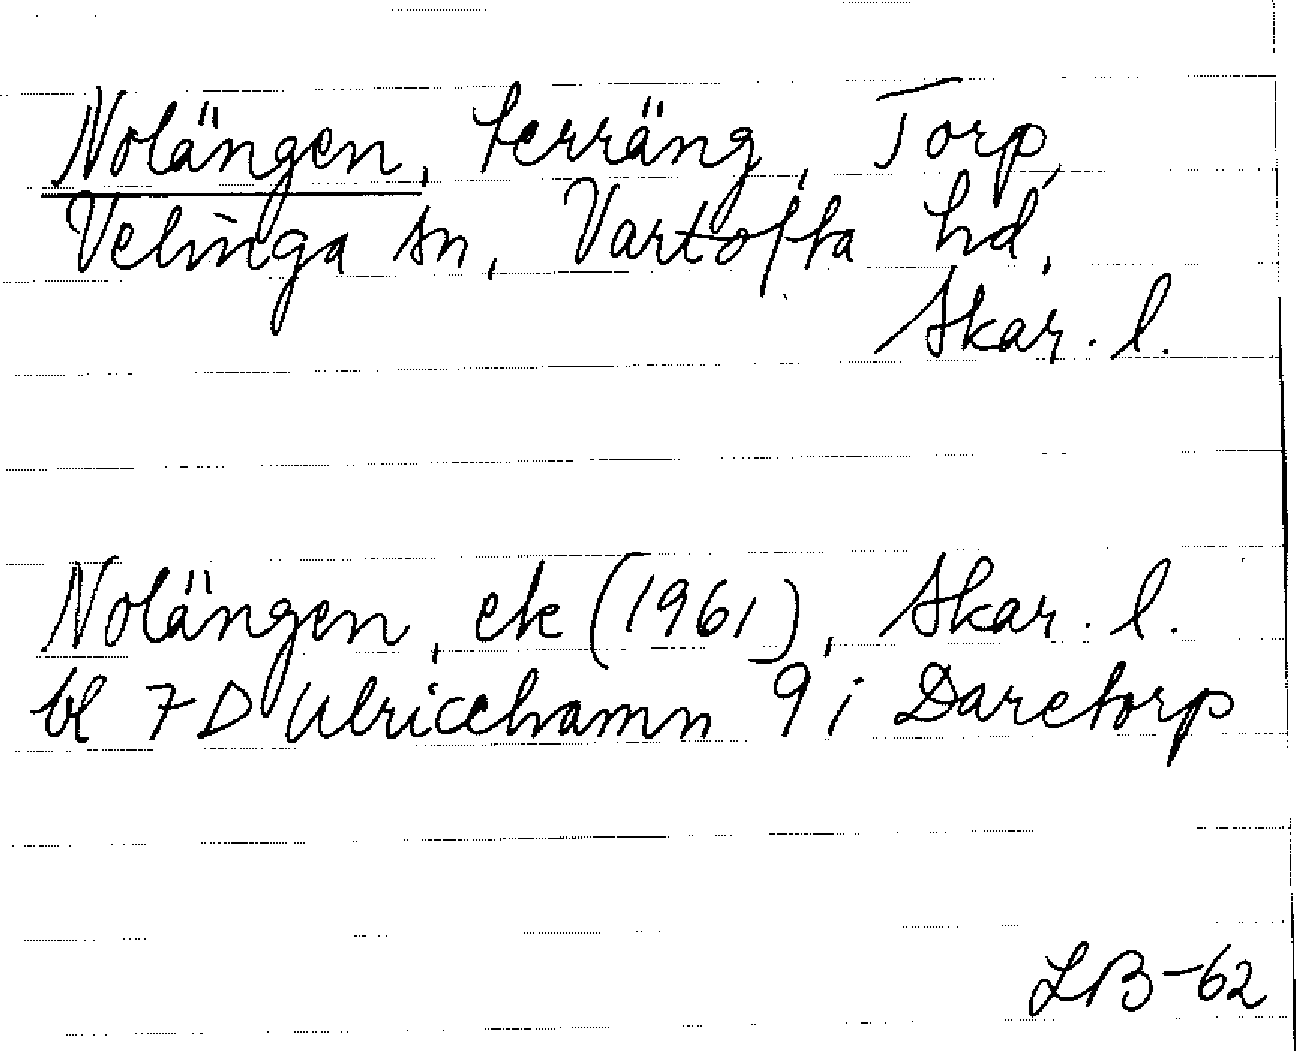 Nolängen, terräng, Torp,
Velinga sn, Vartofta hd,
Skar. l.
Nolängen, ek (1961), Skar. l.
bl 7 D Ulricehamn 9 i Daretorp
LB-62